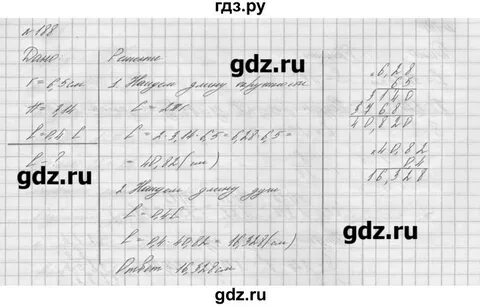 гдз.ру
№ 188
Дано
Решение
r = 6,5 см
1. Найдем длину окружности
π = 3,14
C = 2πr
l = 0,4 C
C = 2·3,14·6,5 = 6,28·6,5 =
l - ?
= 40,82 (см)
2. Найдем длину дуги
l = 0,4 C
l = 0,4·40,82 = 16,328 (см)
Ответ: 16,328 см
×6,28
6,5
3140
3768
40,820
×40,82
0,4
16,328
gdz.ru
gdz.ru
gdz.ru
gdz.ru
gdz.ru
gdz.ru
gdz.ru